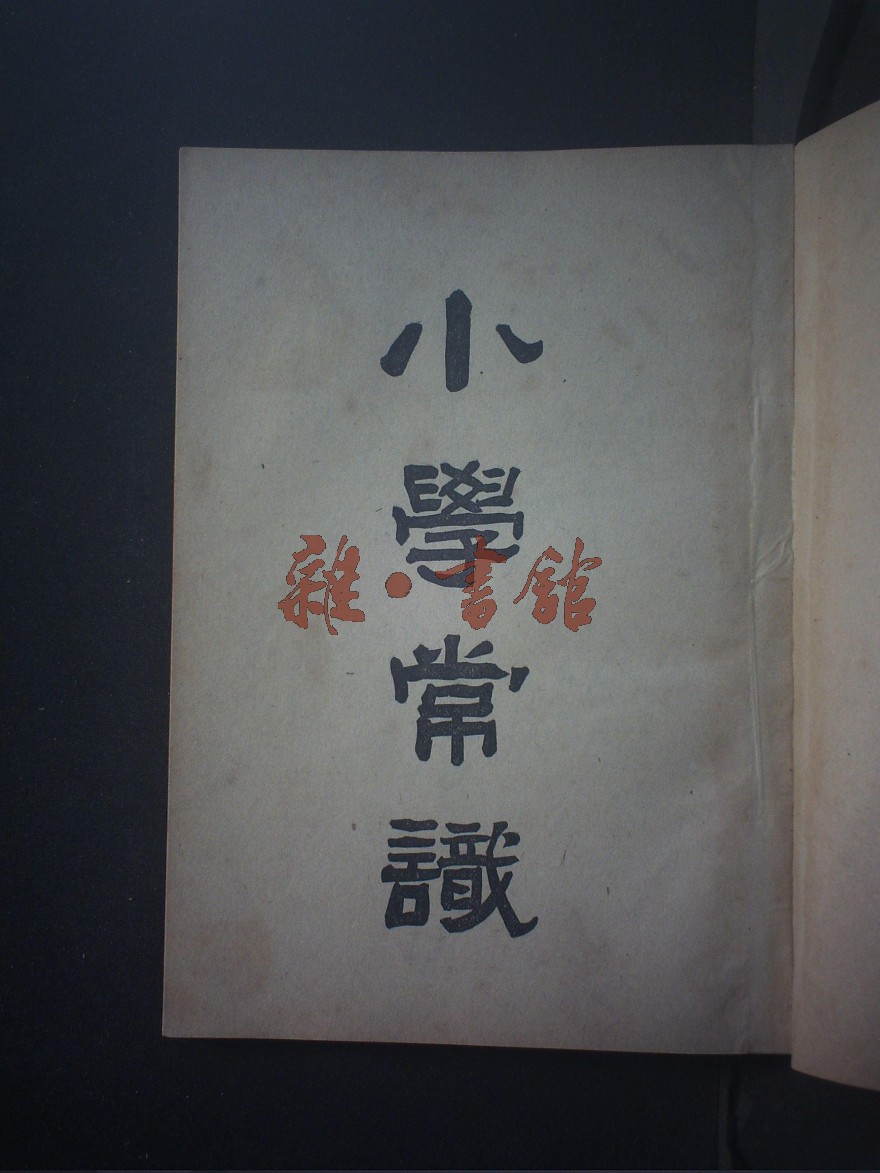 小學常識
雜·書館